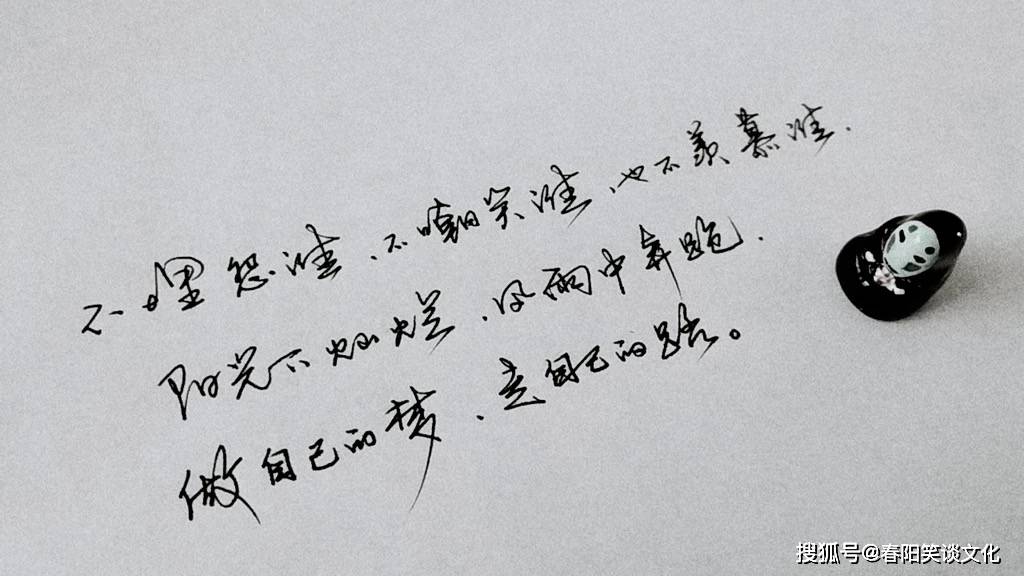 不埋怨谁、不嘲笑谁、也不羡慕谁.
阳光下灿烂、风雨中奔跑.
做自己的梦、走自己的路。
搜狐号@春阳笑谈文化